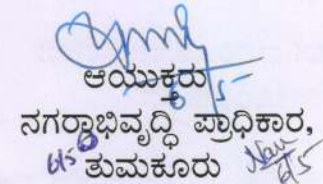 ಆಯುಕ್ತರು
ನಗರಾಭಿವೃದ್ಧಿ ಪ್ರಾಧಿಕಾರ,
ತುಮಕೂರು
6/5